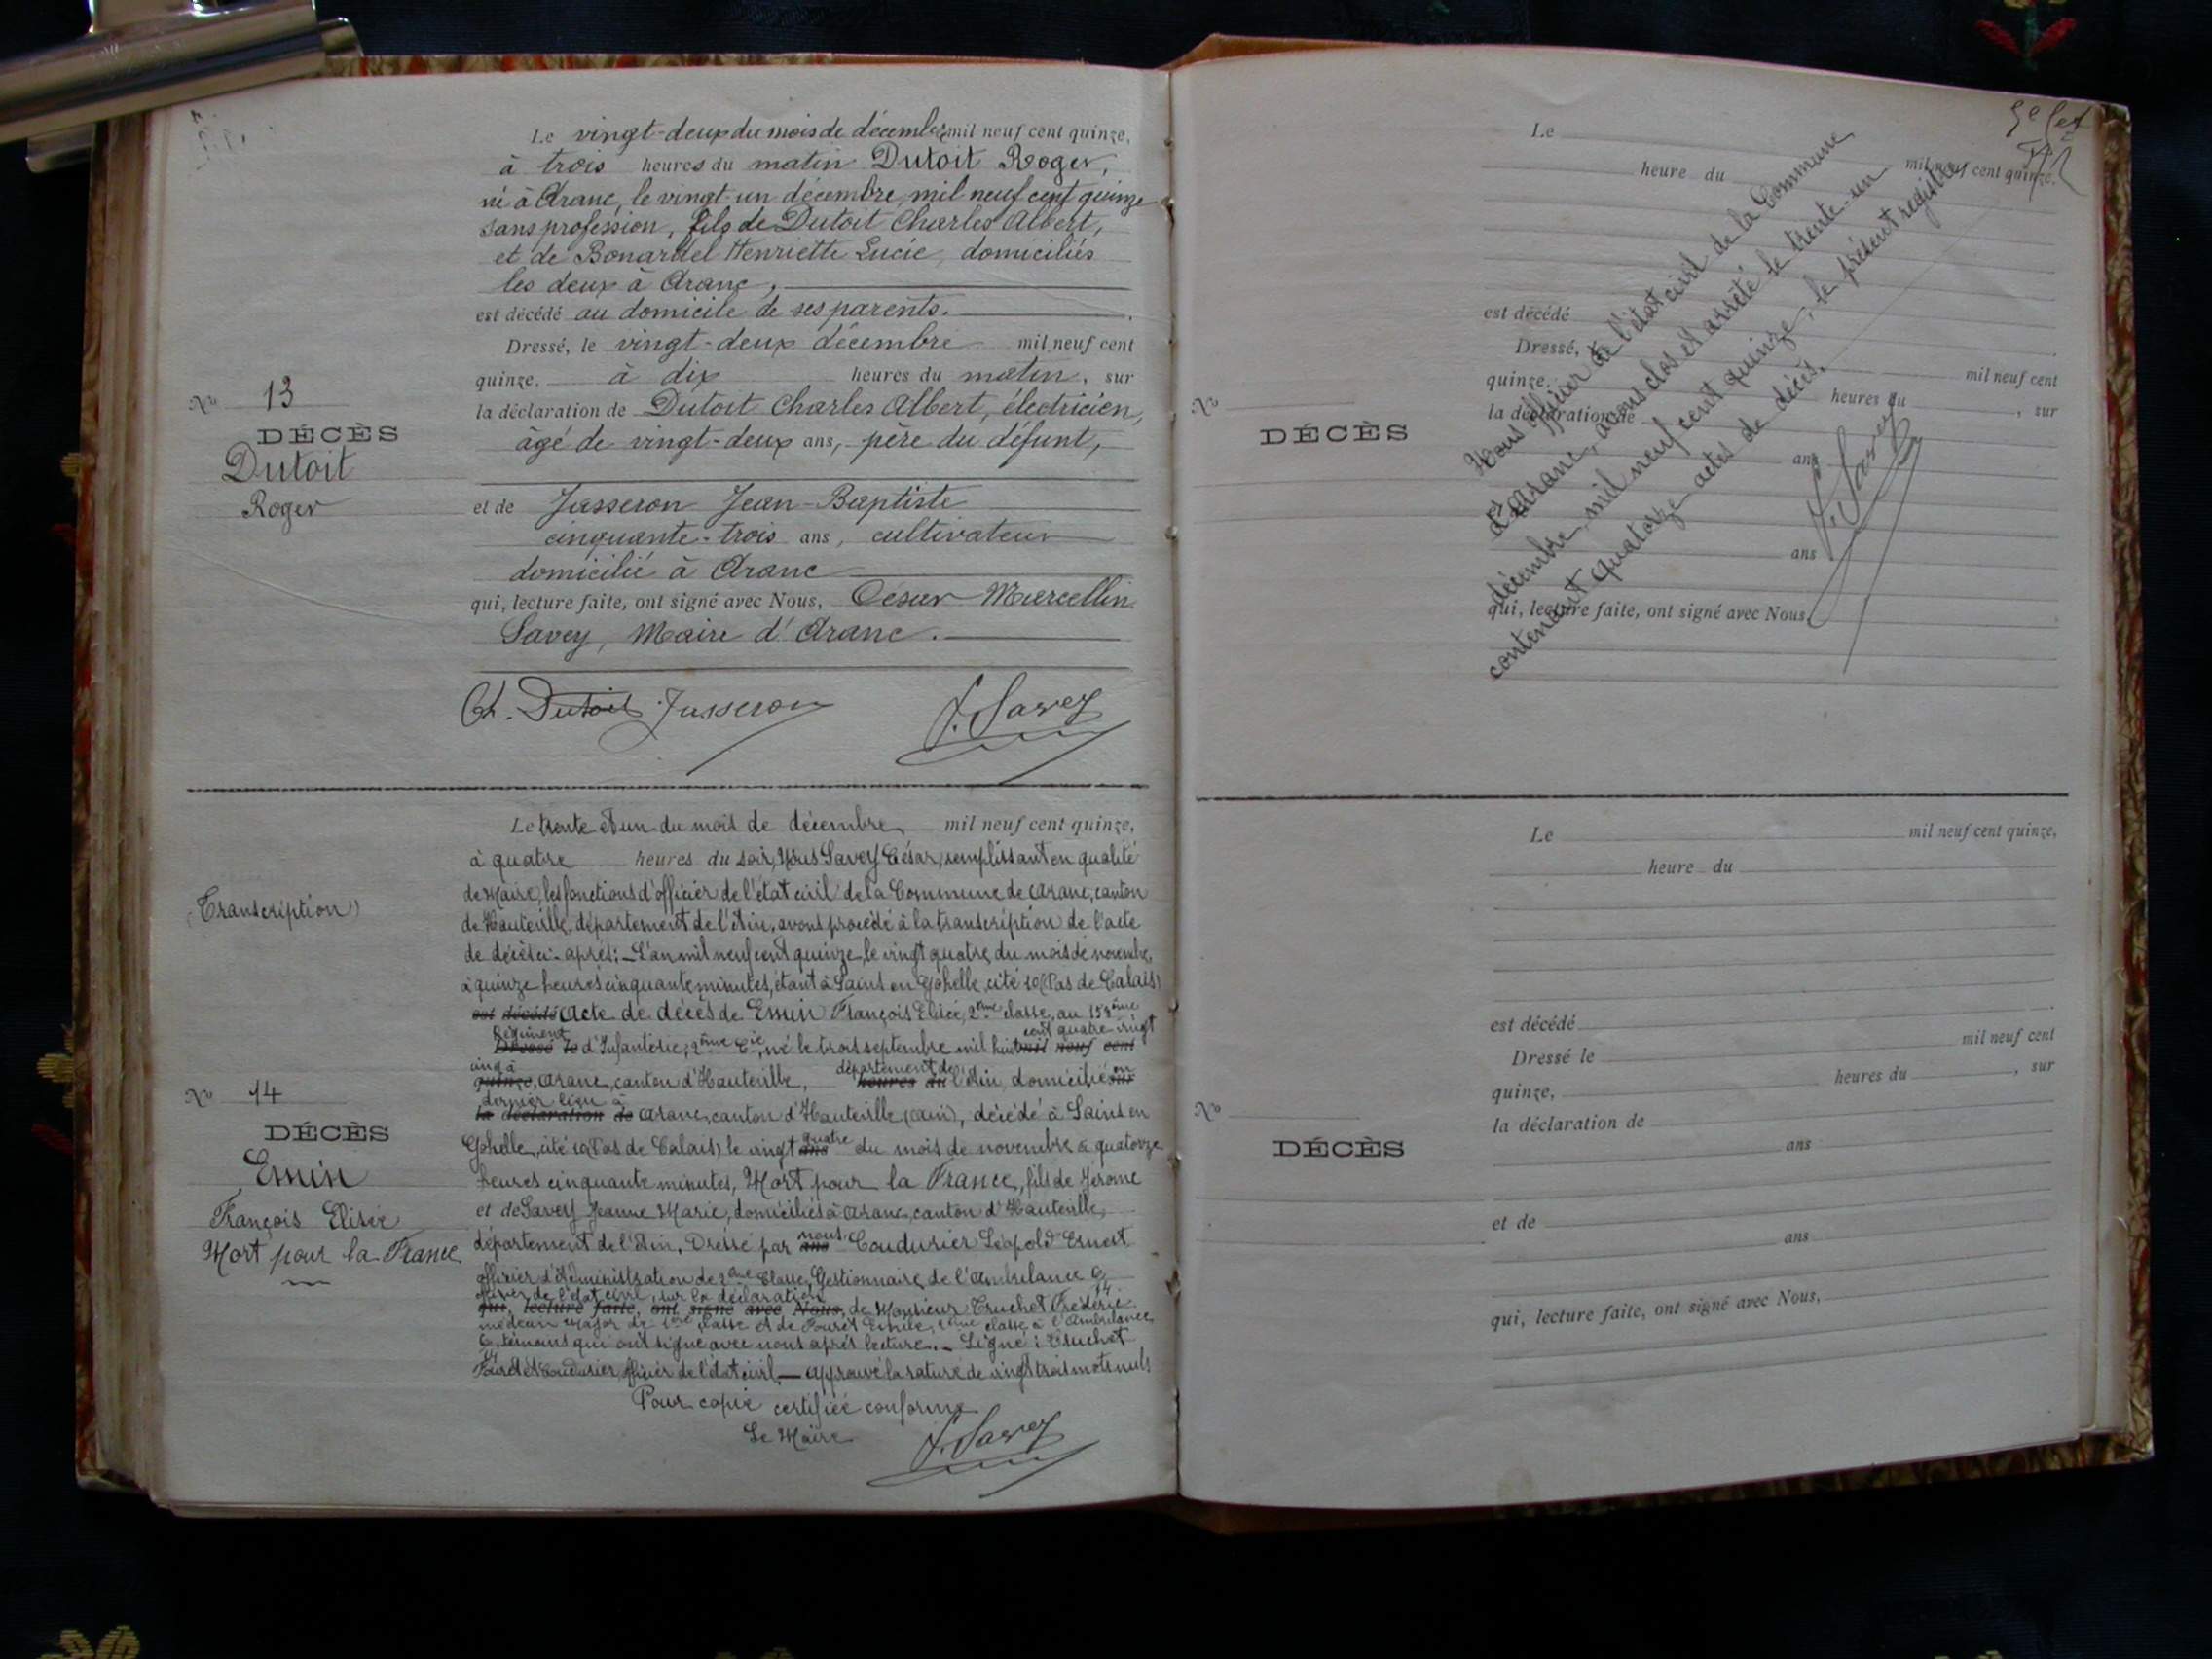 Le vingt-deux du mois de décembre mil neuf cent quinze,
à trois heures du matin Dutoit Roger,
né à Aranc, le vingt-un décembre, mil neuf cent quinze
sans profession, fils de Dutoit Charles Albert,
et de Bonardel Henriette Lucie, domiciliés
les deux à Aranc,
est décédé au domicile de ses parents.
Dressé, le vingt-deux décembre mil neuf cent
quinze. à dix heures du matin, sur
No 13
la déclaration de Dutoit Charles Albert, électricien,
DÉCÈS
âgé de vingt-deux ans, père du défunt,
Dutoit
Roger
et de Jasseron Jean-Baptiste
cinquante-trois ans, cultivateur
domicilié à Aranc
qui, lecture faite, ont signé avec Nous, César Marcellin
Savey, Maire d'Aranc.
Ch. Dutoit Jasseron Savey
Le trente et un du mois de décembre, mil neuf cent quinze,
à quatre heures du soir, Nous Savey César, remplissant en qualité
de Maire, les fonctions d'officier de l'état civil de la Commune de Aranc, canton
(Transcription)
de Hauteville, département de l'Ain, avons procédé à la transcription de l'acte
de décès ci-après: L'an mil neuf cent quinze, le vingt quatre du mois de novembre,
à quinze heures cinquante minutes, étant à Sains en Gohelle, cité 10 (Pas de Calais)
est décédé Acte de décès de Emin François Elisée, 2ème classe, au 158ème
Régiment cent quatre vingt
Dressé le d'Infanterie, 2ème Cie, né le trois septembre mil huit mil neuf cent
cinq à département de en
quinze, Aranc, canton d'Hauteville, heures du l'Ain, domicilié sur
No 14
dernier lieu à
la déclaration de Aranc, canton d'Hauteville (Ain), décédé à Sains en
DÉCÈS
quatre
Gohelle, cité 10 (Pas de Calais) le vingt ans du mois de novembre à quatorze
Emin
heures cinquante minutes, Mort pour la France, fils de Jérome
François Elisée
et de Savey Jeanne Marie, domiciliés à Aranc, canton d'Hauteville,
Mort pour la France
nous
département de l'Ain, Dressé par ans Coudurier Léopold Ernest
officier d'Administration de 2ème Classe, Gestionnaire de l'Ambulance
officier de l'état civil, sur la déclaration
qui, lecture faite, ont signé avec Nous, de Monsieur Truchet Frédéric
médecin Major de classe et de Emile, 2ème classe à l'Ambulance
témoins qui ont signé avec nous après lecture. Signé: Truchet
et Coudurier, officier de l'état civil. Approuvé la rature de vingt trois mots nuls
Pour copie certifiée conforme
Le Maire
Savey
Le mil neuf cent quinze,
heure du
est décédé
Dressé, le
mil neuf cent
quinze.
heures du , sur
la déclaration de
No
DÉCÈS
ans
ans
qui, lecture faite, ont signé avec Nous,
Nous officier de l'état civil de la Commune
d'Aranc, avons clos et arrêté le trente-un
décembre mil neuf cent quinze, le présent registre
contenant quatorze actes de décès.
Savey
Le mil neuf cent quinze,
heure du
est décédé
Dressé le mil neuf cent
quinze, heures du , sur
No
la déclaration de
DÉCÈS
ans
et de
ans
qui, lecture faite, ont signé avec Nous,